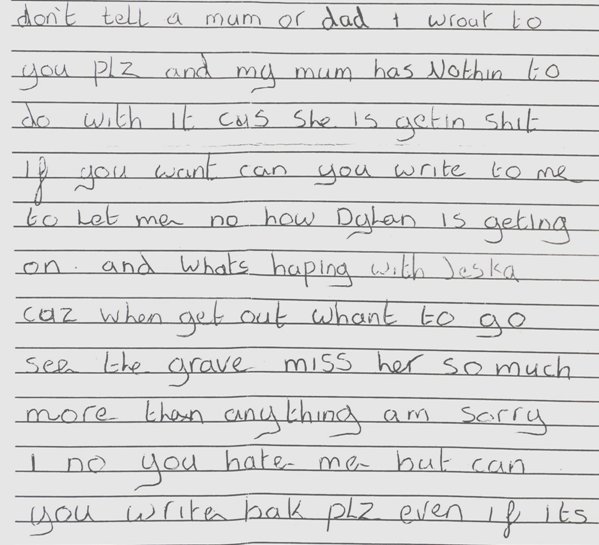 don't tell a mum or dad I wrout to
you plz and my mum has Nothin to
do with it cus she is getin shit
if you want can you write to me
to Let me no how Dylan is geting
on. and whats haping with Jeska
caz when get out whant to go
see the grave miss her so much
more than anything am sorry
I no you hate me but can
you write bak plz even if its